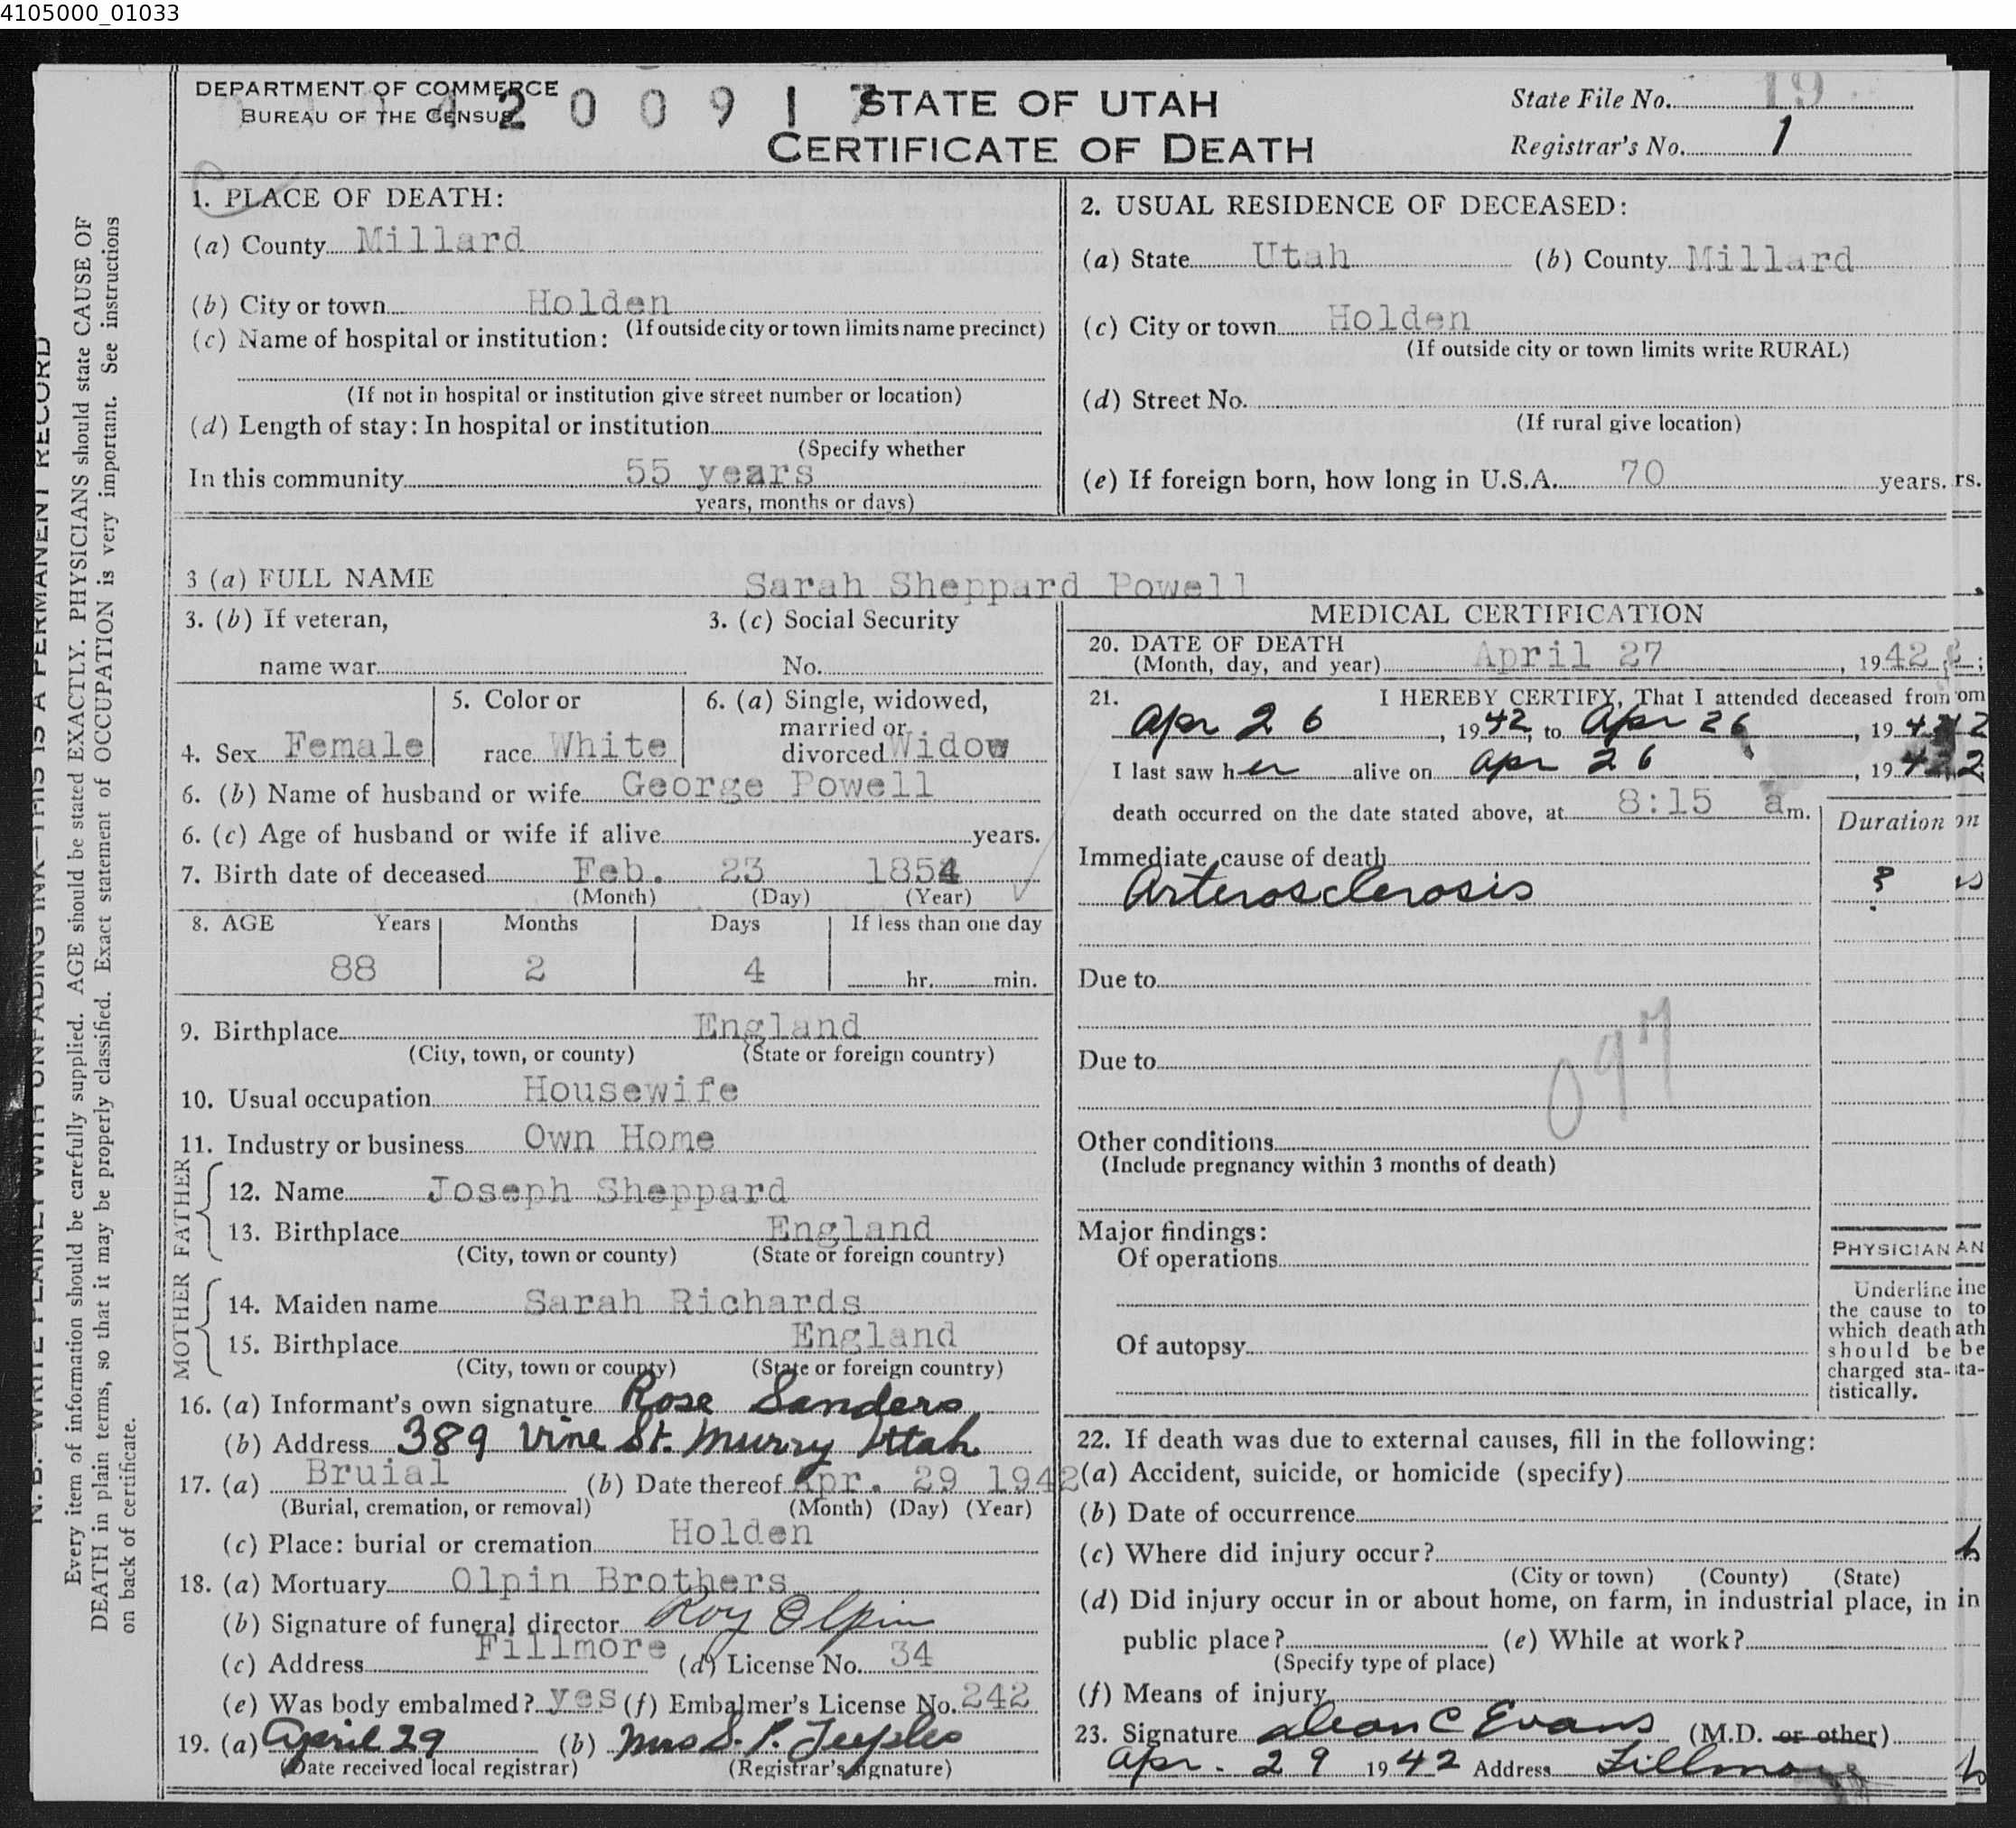 4105000_01033
DEPARTMENT OF COMMERCE
BUREAU OF THE CENSUS
42 0 0 9 1 7
STATE OF UTAH
CERTIFICATE OF DEATH
State File No. 19
Registrar's No. 1
1. PLACE OF DEATH:
(a) County Millard
(b) City or town Holden
(If outside city or town limits name precinct)
(c) Name of hospital or institution:
(If not in hospital or institution give street number or location)
(d) Length of stay: In hospital or institution
(Specify whether
In this community 55 years
years, months or days)
2. USUAL RESIDENCE OF DECEASED:
(a) State Utah (b) County Millard
(c) City or town Holden
(If outside city or town limits write RURAL)
(d) Street No.
(If rural give location)
(e) If foreign born, how long in U.S.A. 70 years. rs.
3 (a) FULL NAME Sarah Sheppard Powell
3. (b) If veteran, 3. (c) Social Security
name war No.
4. Sex Female
5. Color or
race White
6. (a) Single, widowed,
married or
divorced Widow
6. (b) Name of husband or wife George Powell
6. (c) Age of husband or wife if alive years.
7. Birth date of deceased Feb. 23 1854
(Month) (Day) (Year)
8. AGE Years Months Days If less than one day
88 2 4 hr. min.
9. Birthplace England
(City, town, or county) (State or foreign country)
10. Usual occupation Housewife
11. Industry or business Own Home
FATHER
12. Name Joseph Sheppard
13. Birthplace England
(City, town or county) (State or foreign country)
MOTHER
14. Maiden name Sarah Richards
15. Birthplace England
(City, town or county) (State or foreign country)
16. (a) Informant's own signature Rose Sanders
(b) Address 389 Vine St. Murry Utah
17. (a) Bruial (b) Date thereof Apr. 29 1942
(Burial, cremation, or removal) (Month) (Day) (Year)
(c) Place: burial or cremation Holden
18. (a) Mortuary Olpin Brothers
(b) Signature of funeral director Roy Olpin
(c) Address Fillmore (d) License No. 34
(e) Was body embalmed? yes (f) Embalmer's License No. 242
19. (a) April 29 (b) Mrs S. P. Teeples
(Date received local registrar) (Registrar's signature)
MEDICAL CERTIFICATION
20. DATE OF DEATH
(Month, day, and year) April 27, 1942;
21. I HEREBY CERTIFY, That I attended deceased from om
Apr 26, 1942, to Apr 26, 1942
I last saw her alive on Apr 26, 1942
death occurred on the date stated above, at 8:15 am.
Duration on
Immediate cause of death
Arterosclerosis ?
Due to
Due to
097
Other conditions
(Include pregnancy within 3 months of death)
Major findings:
Of operations
Of autopsy
PHYSICIAN AN
Underline ine
the cause to to
which death ath
should be be
charged sta- ta-
tistically.
22. If death was due to external causes, fill in the following:
(a) Accident, suicide, or homicide (specify)
(b) Date of occurrence
(c) Where did injury occur?
(City or town) (County) (State)
(d) Did injury occur in or about home, on farm, in industrial place, in in
public place? (e) While at work?
(Specify type of place)
(f) Means of injury
23. Signature Dean C Evans (M.D. or other)
Apr. 29 1942 Address Fillmore
N. B.—WRITE PLAINLY WITH UNFADING INK—THIS IS A PERMANENT RECORD
Every item of information should be carefully supplied. AGE should be stated EXACTLY. PHYSICIANS should state CAUSE OF
DEATH in plain terms, so that it may be properly classified. Exact statement of OCCUPATION is very important. See instructions
on back of certificate.